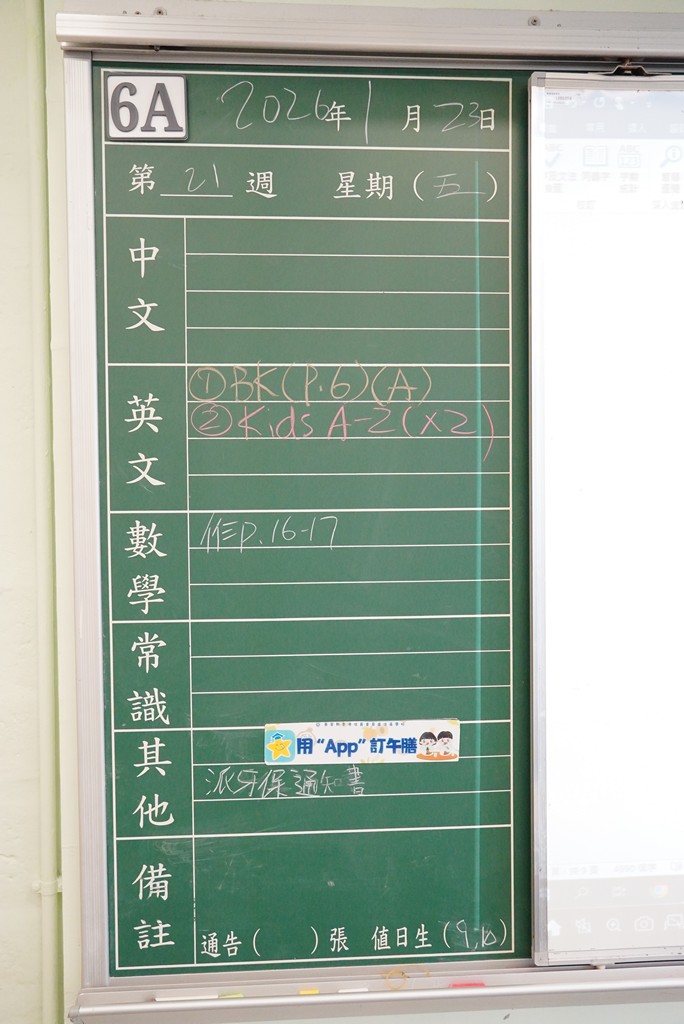 6A 2026年1月23日
第 21 週 星期(五)
中文
英文
①BK(P.6)(A)
②Kids A-Z(x2)
數學
作P.16-17
常識
其他
用“App”訂午膳
派牙保通知書
備註
通告( )張 值日生(9,10)